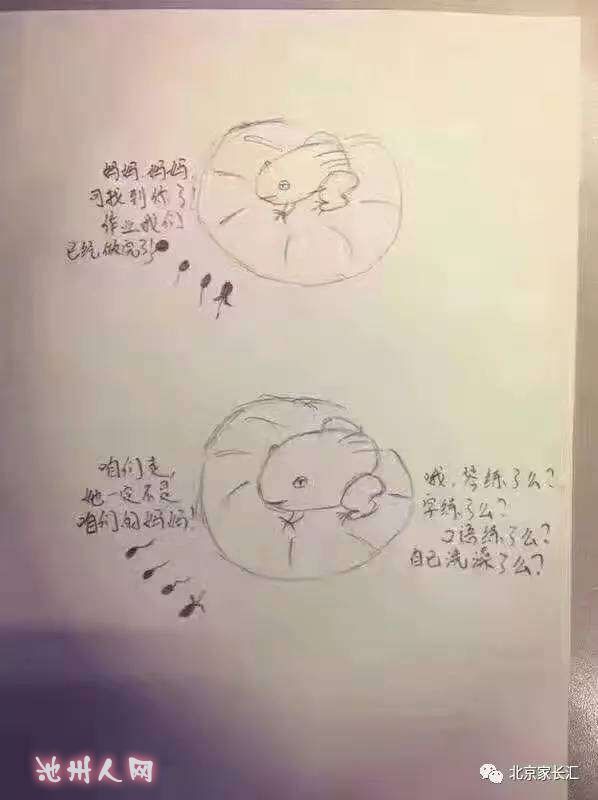 妈妈,妈妈,
可找到你了!
作业我们
已经做完了!
咱们走,
她一定不是
咱们的妈妈!
哦,琴练了么?
字练了么?
口语练了么?
自己洗澡了么?
池州人网
北京家长汇